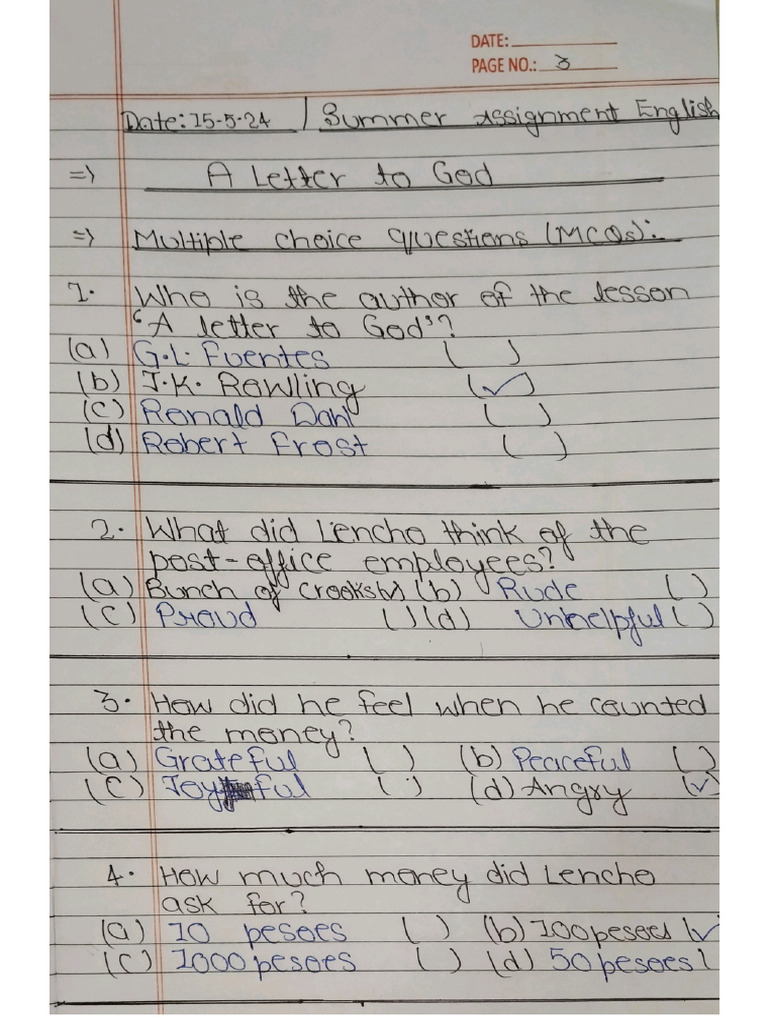 DATE:
PAGE NO.: 3
Date: 15-5-24 | Summer Assignment English
=> A Letter to God
=> Multiple choice questions (MCQs):
1. Who is the author of the lesson
'A letter to God'?
(a) G.L. Fuentes ( )
(b) J.K. Rowling (✓)
(c) Ronald Dahl ( )
(d) Robert Frost ( )
2. What did Lencho think of the
post-office employees?
(a) Bunch of crooks (✓) (b) Rude ( )
(c) Proud ( ) (d) Unhelpful ( )
3. How did he feel when he counted
the money?
(a) Grateful ( ) (b) Peaceful ( )
(c) Joyful ( ) (d) Angry (✓)
4. How much money did Lencho
ask for?
(a) 10 pesoes ( ) (b) 100 pesoes (✓
(c) 1000 pesoes ( ) (d) 50 pesoes (